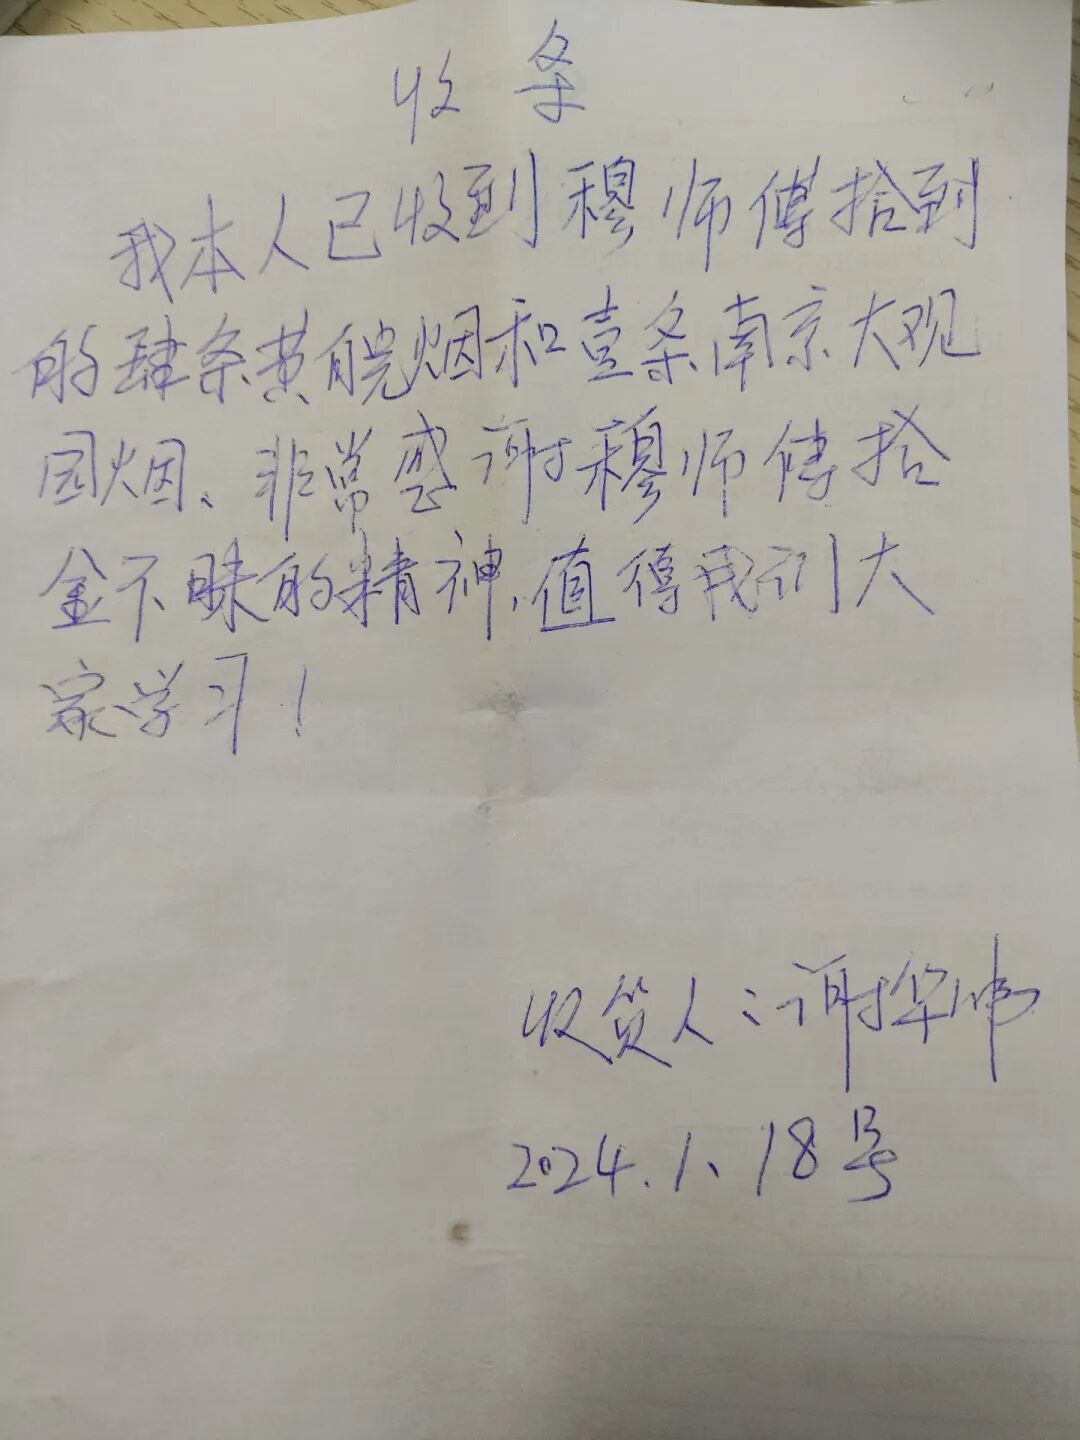 收条
我本人已收到穆师傅拾到
的肆条黄皖烟和壹条南京大观
园烟、非常感谢穆师傅拾
金不昧的精神,值得我们大
家学习！
收货人：谢华炜
2024.1、18号